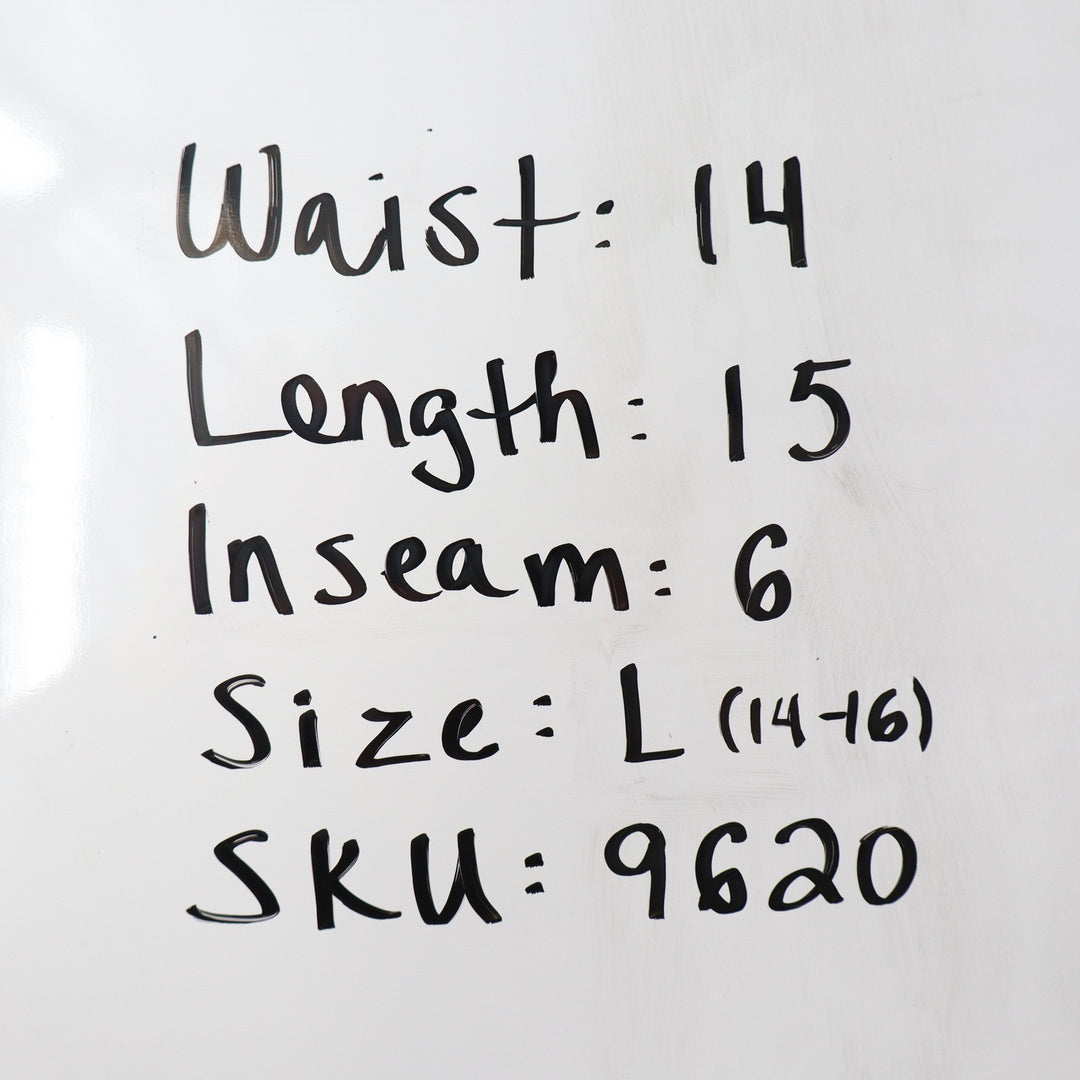 Waist: 14
Length: 15
Inseam: 6
Size: L (14-16)
SKU: 9620